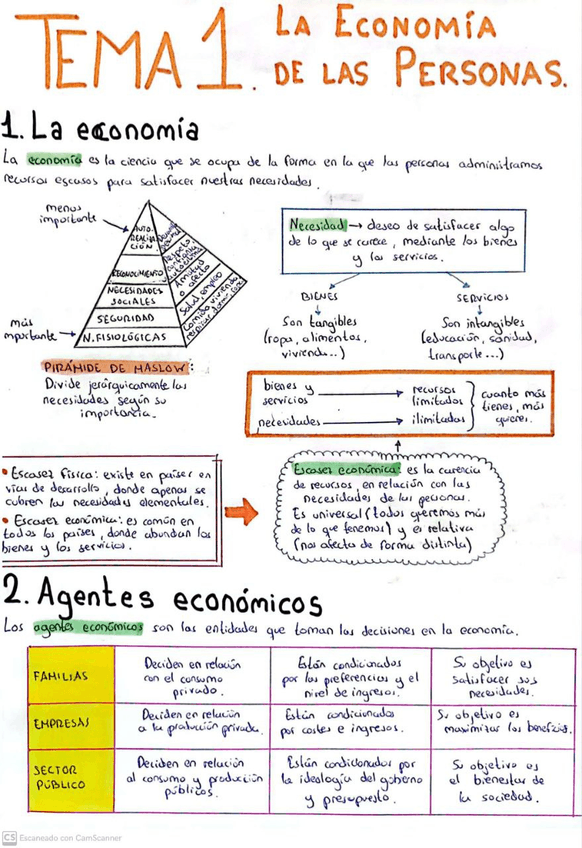 TEMA 1. LA ECONOMÍA
DE LAS PERSONAS.
1. La economía
La economía es la ciencia que se ocupa de la forma en la que las personas administramos
recursos escasos para satisfacer nuestras necesidades.
menos
importante
más
importante
AUTO-
REALIZA
CIÓN
RECONOCIMIENTO
NECESIDADES
SOCIALES
SEGURIDAD
N. FISIOLÓGICAS
Amistad
o afecto
Salud, empleo
Comida, vivienda
PIRÁMIDE DE MASLOW:
Divide jerárquicamente las
necesidades según su
importancia.
Necesidad → deseo de satisfacer algo
de lo que se carece, mediante los bienes
y los servicios.
BIENES
Son tangibles
(ropa, alimentos,
vivienda...)
SERVICIOS
Son intangibles
(educación, sanidad,
transporte...)
bienes y servicios → recursos limitados
necesidades → ilimitadas
cuanto más
tienes, más
quieres.
• Escasez física: existe en países en
vías de desarrollo, donde apenas se
cubren las necesidades elementales.
• Escasez económica: es común en
todos los países, donde abundan los
bienes y los servicios.
Escasez económica: es la carencia
de recursos, en relación con las
necesidades de las personas.
Es universal (todos queremos más
de lo que tenemos) y es relativa
(nos afecta de forma distinta)
2. Agentes económicos
Los agentes económicos son las entidades que toman las decisiones en la economía.
FAMILIAS
Deciden en relación
con el consumo
privado.
Están condicionados
por las preferencias y el
nivel de ingresos.
Su objetivo es
satisfacer sus
necesidades.
EMPRESAS
Deciden en relación
a la producción privada.
Están condicionados
por costes e ingresos.
Su objetivo es
maximizar los beneficios.
SECTOR
PÚBLICO
Deciden en relación
al consumo y producción
públicos.
Están condicionados por
la ideología del gobierno
y presupuesto.
Su objetivo es
el bienestar de
la sociedad.
CS Escaneado con CamScanner